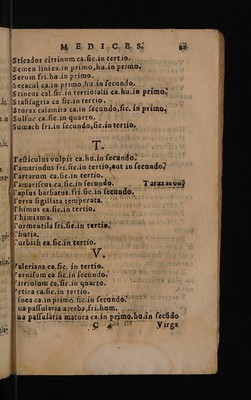 MEDICES.
Sticados citrinum ca.sic.in tertio.
Semen lini ca.in primo,hu.in primo.
Serum fri.hu.in primo.
Seseacul ca.in primo,hu.in secundo.
Stincus cal.sic.in tertio:alii ca.hu.in primo.
Stafisagria ca sic.in tertio.
Storax calamita ca.in secundo,sic.in primo.
Sulfur ca.sic.in quarto.
Sumach fri.in secundo,sic.in tertio.
T.
Testiculus vulpis ca.hu.in secundo.
Tamarindus fri.sic.in tertio,aut in secundo.
Tartarum ca.sic.in tertio.
Tamariscus ca.sic.in secundo.
Tapsus barbatus.fri.sic.in secundo.
Terra sigillata temperata.
Thimus ca.sic.in tertio.
Thimiama.
Tormentila fri.sic.in tertio.
Thutia.
Turbith ca.sic.in tertio.
V.
Valeriana ca.sic. in tertio.
Vernisum ca.sic.in secundo.
Vitriolum ca.sic.in quarto.
Vrtica ca.sic.in tertio.
Vsnea ca.in primo.sic.in secundo.
Vua passularia acerba,fri.hum.
Vua passularia matura ca.in primo.hu.in secūdo
C 4 Virga